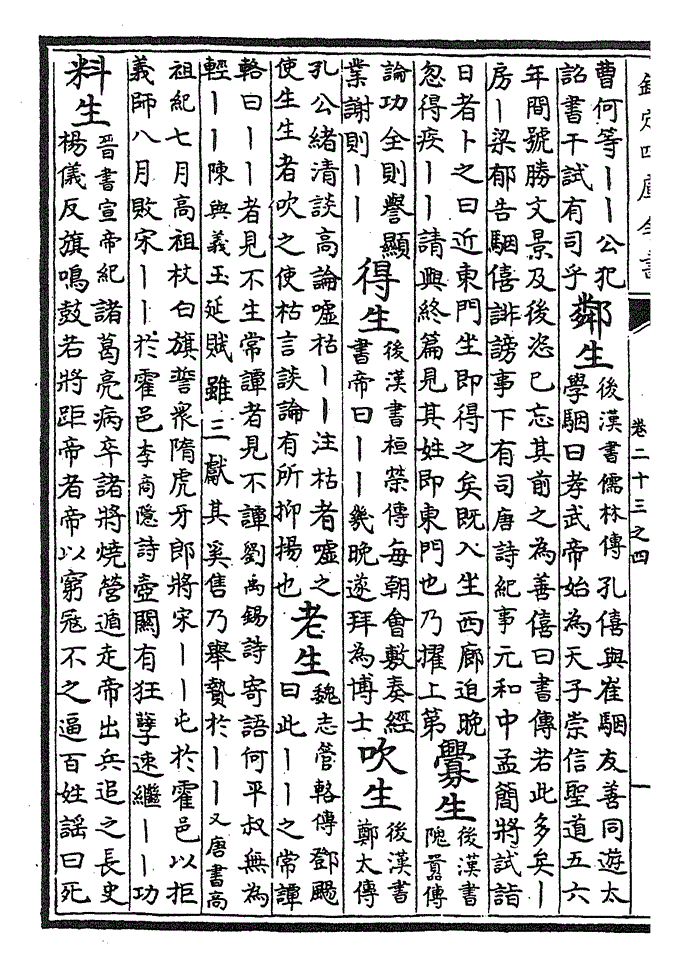 欽定四庫全書
卷二十三之四
一
曹何等丨丨公犯
詔書干試有司乎
鄰生
後漢書儒林傳孔僖與崔駰友善同遊太
學駰曰孝武帝始為天子崇信聖道五六
年間號勝文景及後恣已忘其前之為善僖曰書傳若此多矣丨
房丨梁郁告駰僖誹謗事下有司唐詩紀事元和中孟簡將試詣
日者卜之曰近東門坐即得之矣既入坐西廊迫晚
忽得疾丨丨請與終篇見其姓即東門也乃擢上第
釁生
後漢書
隗囂傳
論功全則譽顯
業謝則丨丨
得生
後漢書桓榮傳每朝會敷奏經
書帝曰丨丨幾晚遂拜為博士
吹生
後漢書
鄭太傳
孔公緒清談高論噓枯丨丨注枯者噓之
使生生者吹之使枯言談論有所抑揚也
老生
魏志管輅傳鄧颺
曰此丨丨之常譚
輅曰丨丨者見不生常譚者見不譚劉禹錫詩寄語何平叔無為
輕丨丨陳與義玉延賦雖三獻其奚售乃舉贄於丨丨又唐書高
祖紀七月高祖杖白旗誓衆隋虎牙郎將宋丨丨屯於霍邑以拒
義師八月敗宋丨丨於霍邑李商隱詩壺關有狂孽速繼丨丨功
料生
晉書宣帝紀諸葛亮病卒諸將燒營遁走帝出兵追之長史
楊儀反旗鳴鼓若將距帝者帝以窮寇不之逼百姓謠曰死